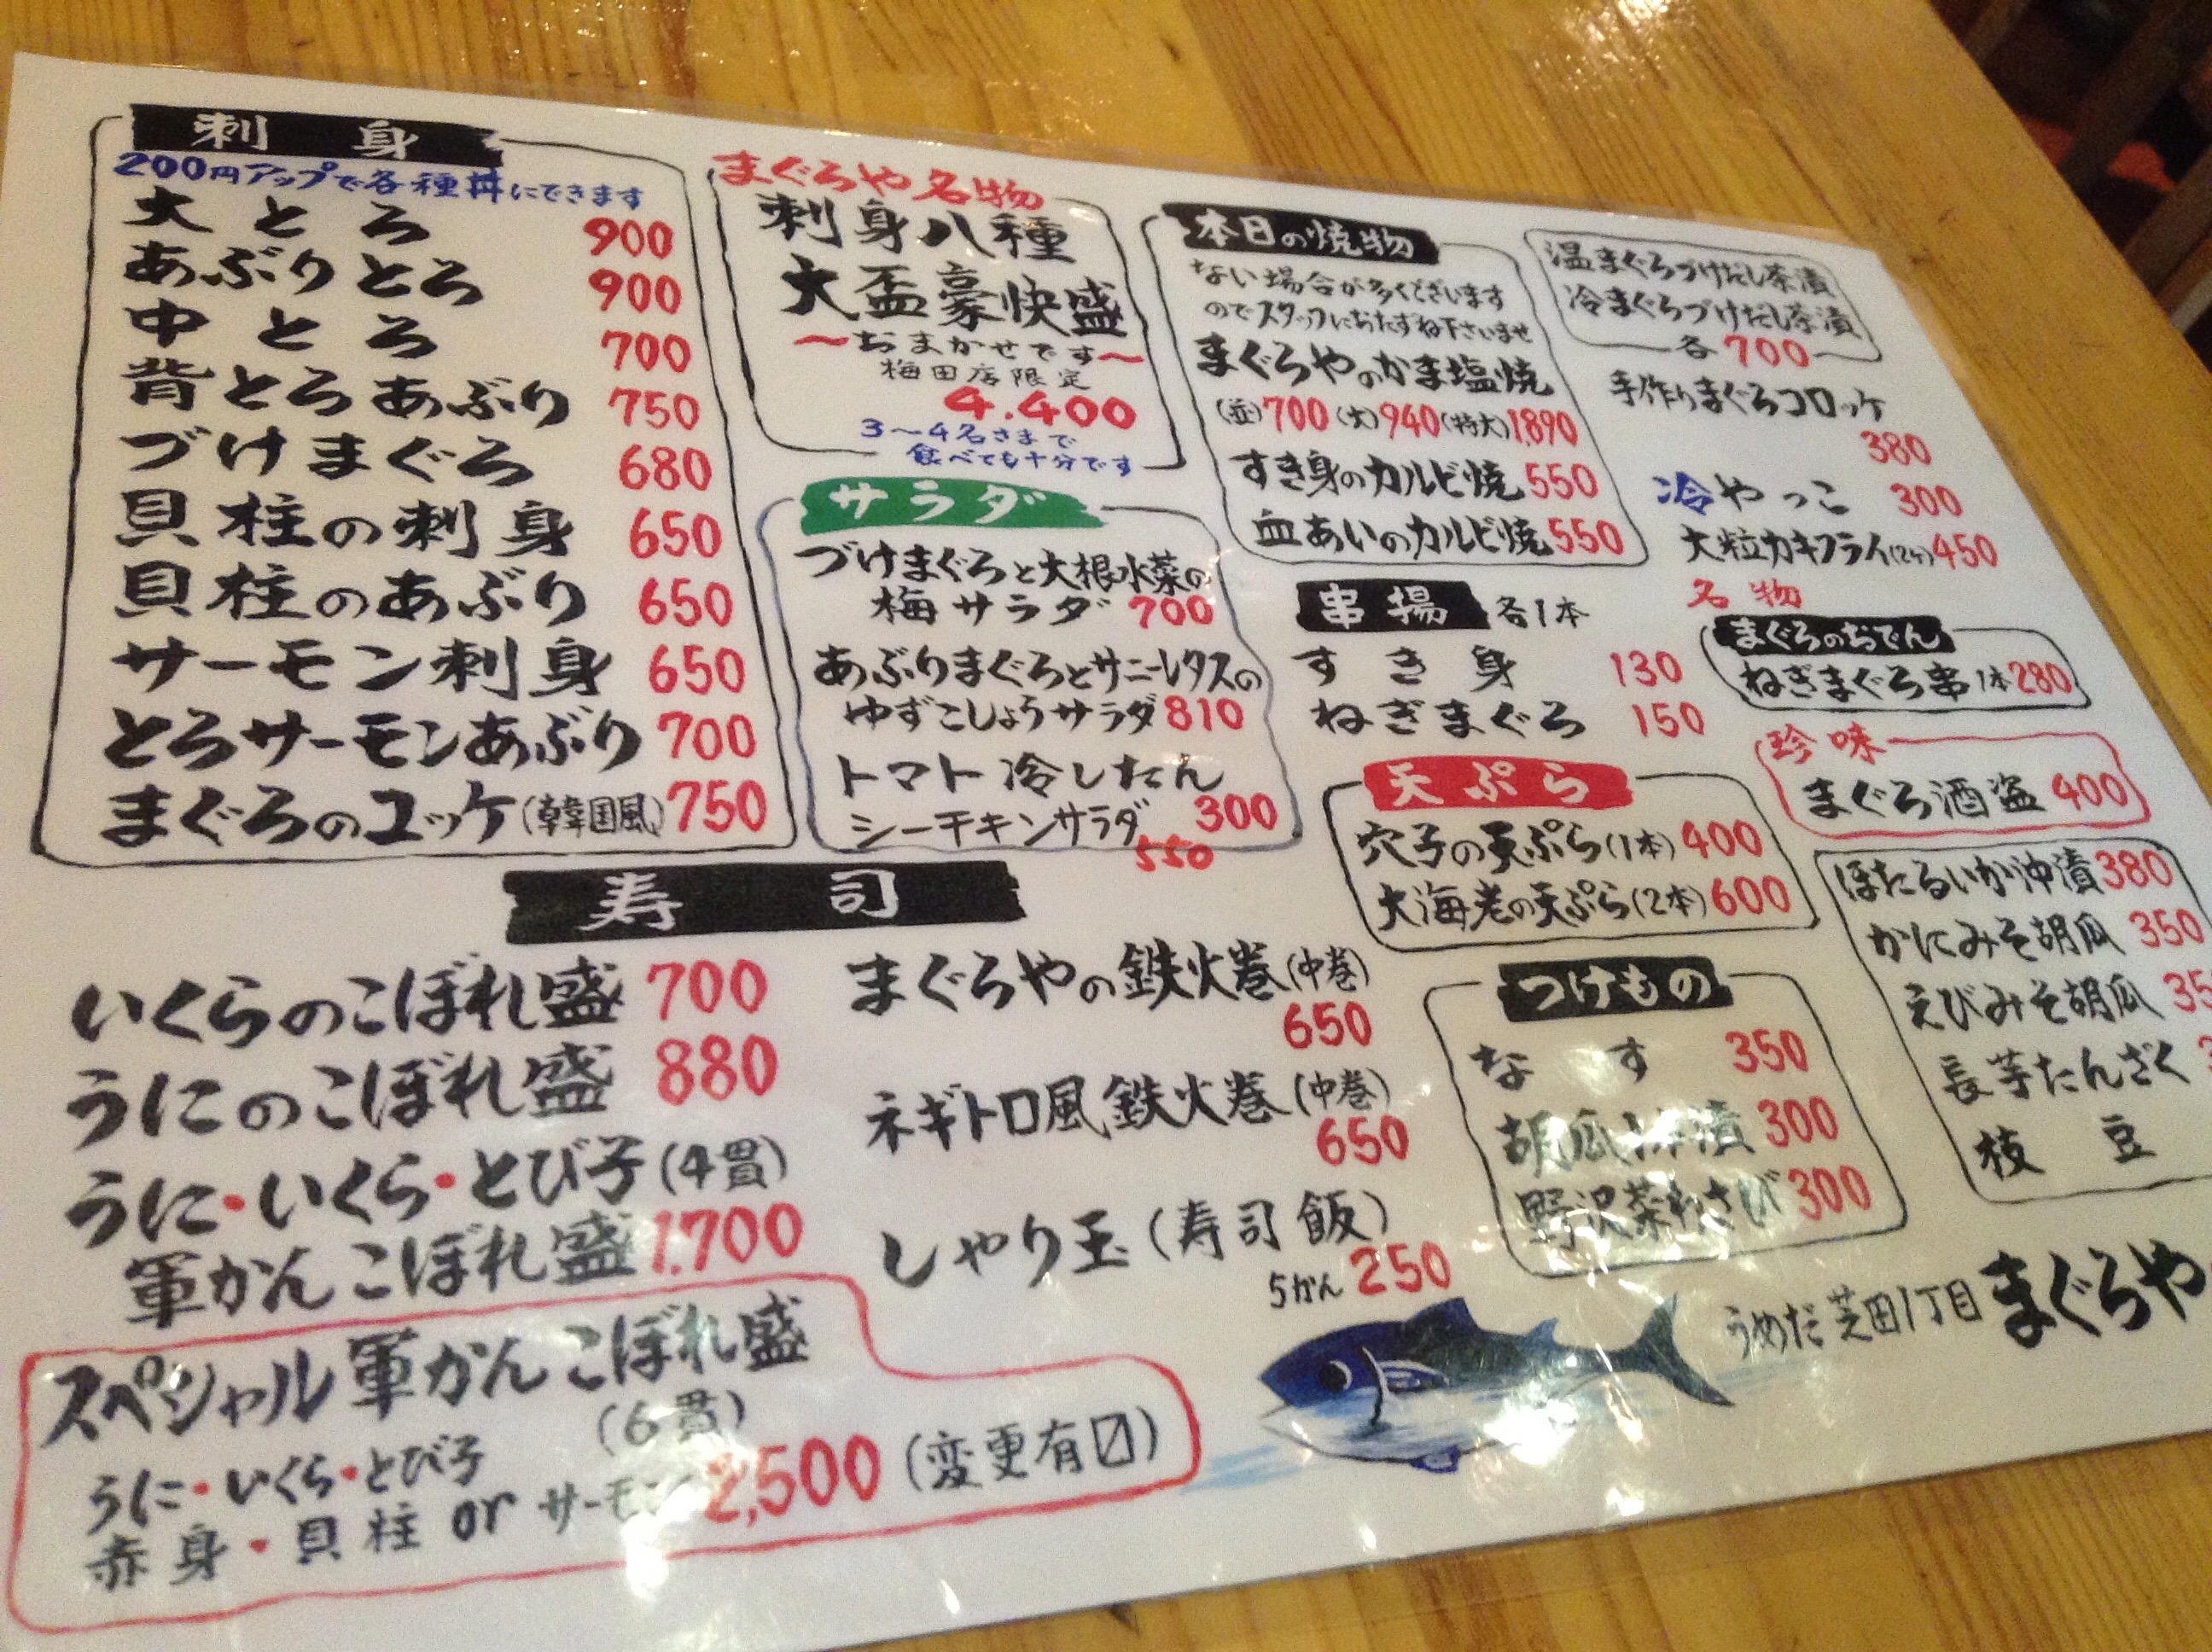 刺身
200円アップで各種丼にできます
大とろ 900
あぶりとろ 900
中とろ 700
背とろあぶり 750
づけまぐろ 680
貝柱の刺身 650
貝柱のあぶり 650
サーモン刺身 650
とろサーモンあぶり 700
まぐろのユッケ(韓国風) 750
まぐろや名物
刺身八種
大盃豪快盛
〜おまかせです〜
梅田店限定
4.400
3〜4名さまで
食べても十分です
サラダ
づけまぐろと大根水菜の
梅サラダ 700
あぶりまぐろとサニーレタスの
ゆずこしょうサラダ 810
トマト冷したん
300
シーチキンサラダ
550
本日の焼物
ない場合が多くございます
のでスタッフにおたずね下さいませ
まぐろやのかま塩焼
(並)700(大)940(特大)1.890
すき身のカルビ焼 550
血あいのカルビ焼 550
串揚 各1本
すき身 130
ねぎまぐろ 150
天ぷら
穴子の天ぷら(1本) 400
大海老の天ぷら(2本) 600
つけもの
なす 350
胡瓜 漬 300
野沢菜わさび 300
温まぐろづけだし茶漬
冷まぐろづけだし茶漬
各700
手作りまぐろコロッケ
380
冷やっこ 300
大粒カキフライ(2ケ) 450
名物
まぐろのおでん
ねぎまぐろ串 1本280
珍味
まぐろ酒盗 400
ほたるいか沖漬 380
かにみそ胡瓜 350
えびみそ胡瓜 35
長芋たんざく
枝豆
寿司
いくらのこぼれ盛 700
うにのこぼれ盛 880
うに・いくら・とび子(4貫)
軍かんこぼれ盛 1.700
スペシャル軍かんこぼれ盛
(6貫)
うに・いくら・とび子
赤身・貝柱 or サーモン 2,500 (変更有〼)
まぐろやの鉄火巻(中巻)
650
ネギトロ風鉄火巻(中巻)
650
しゃり玉(寿司飯)
5かん 250
うめだ芝田1丁目 まぐろや